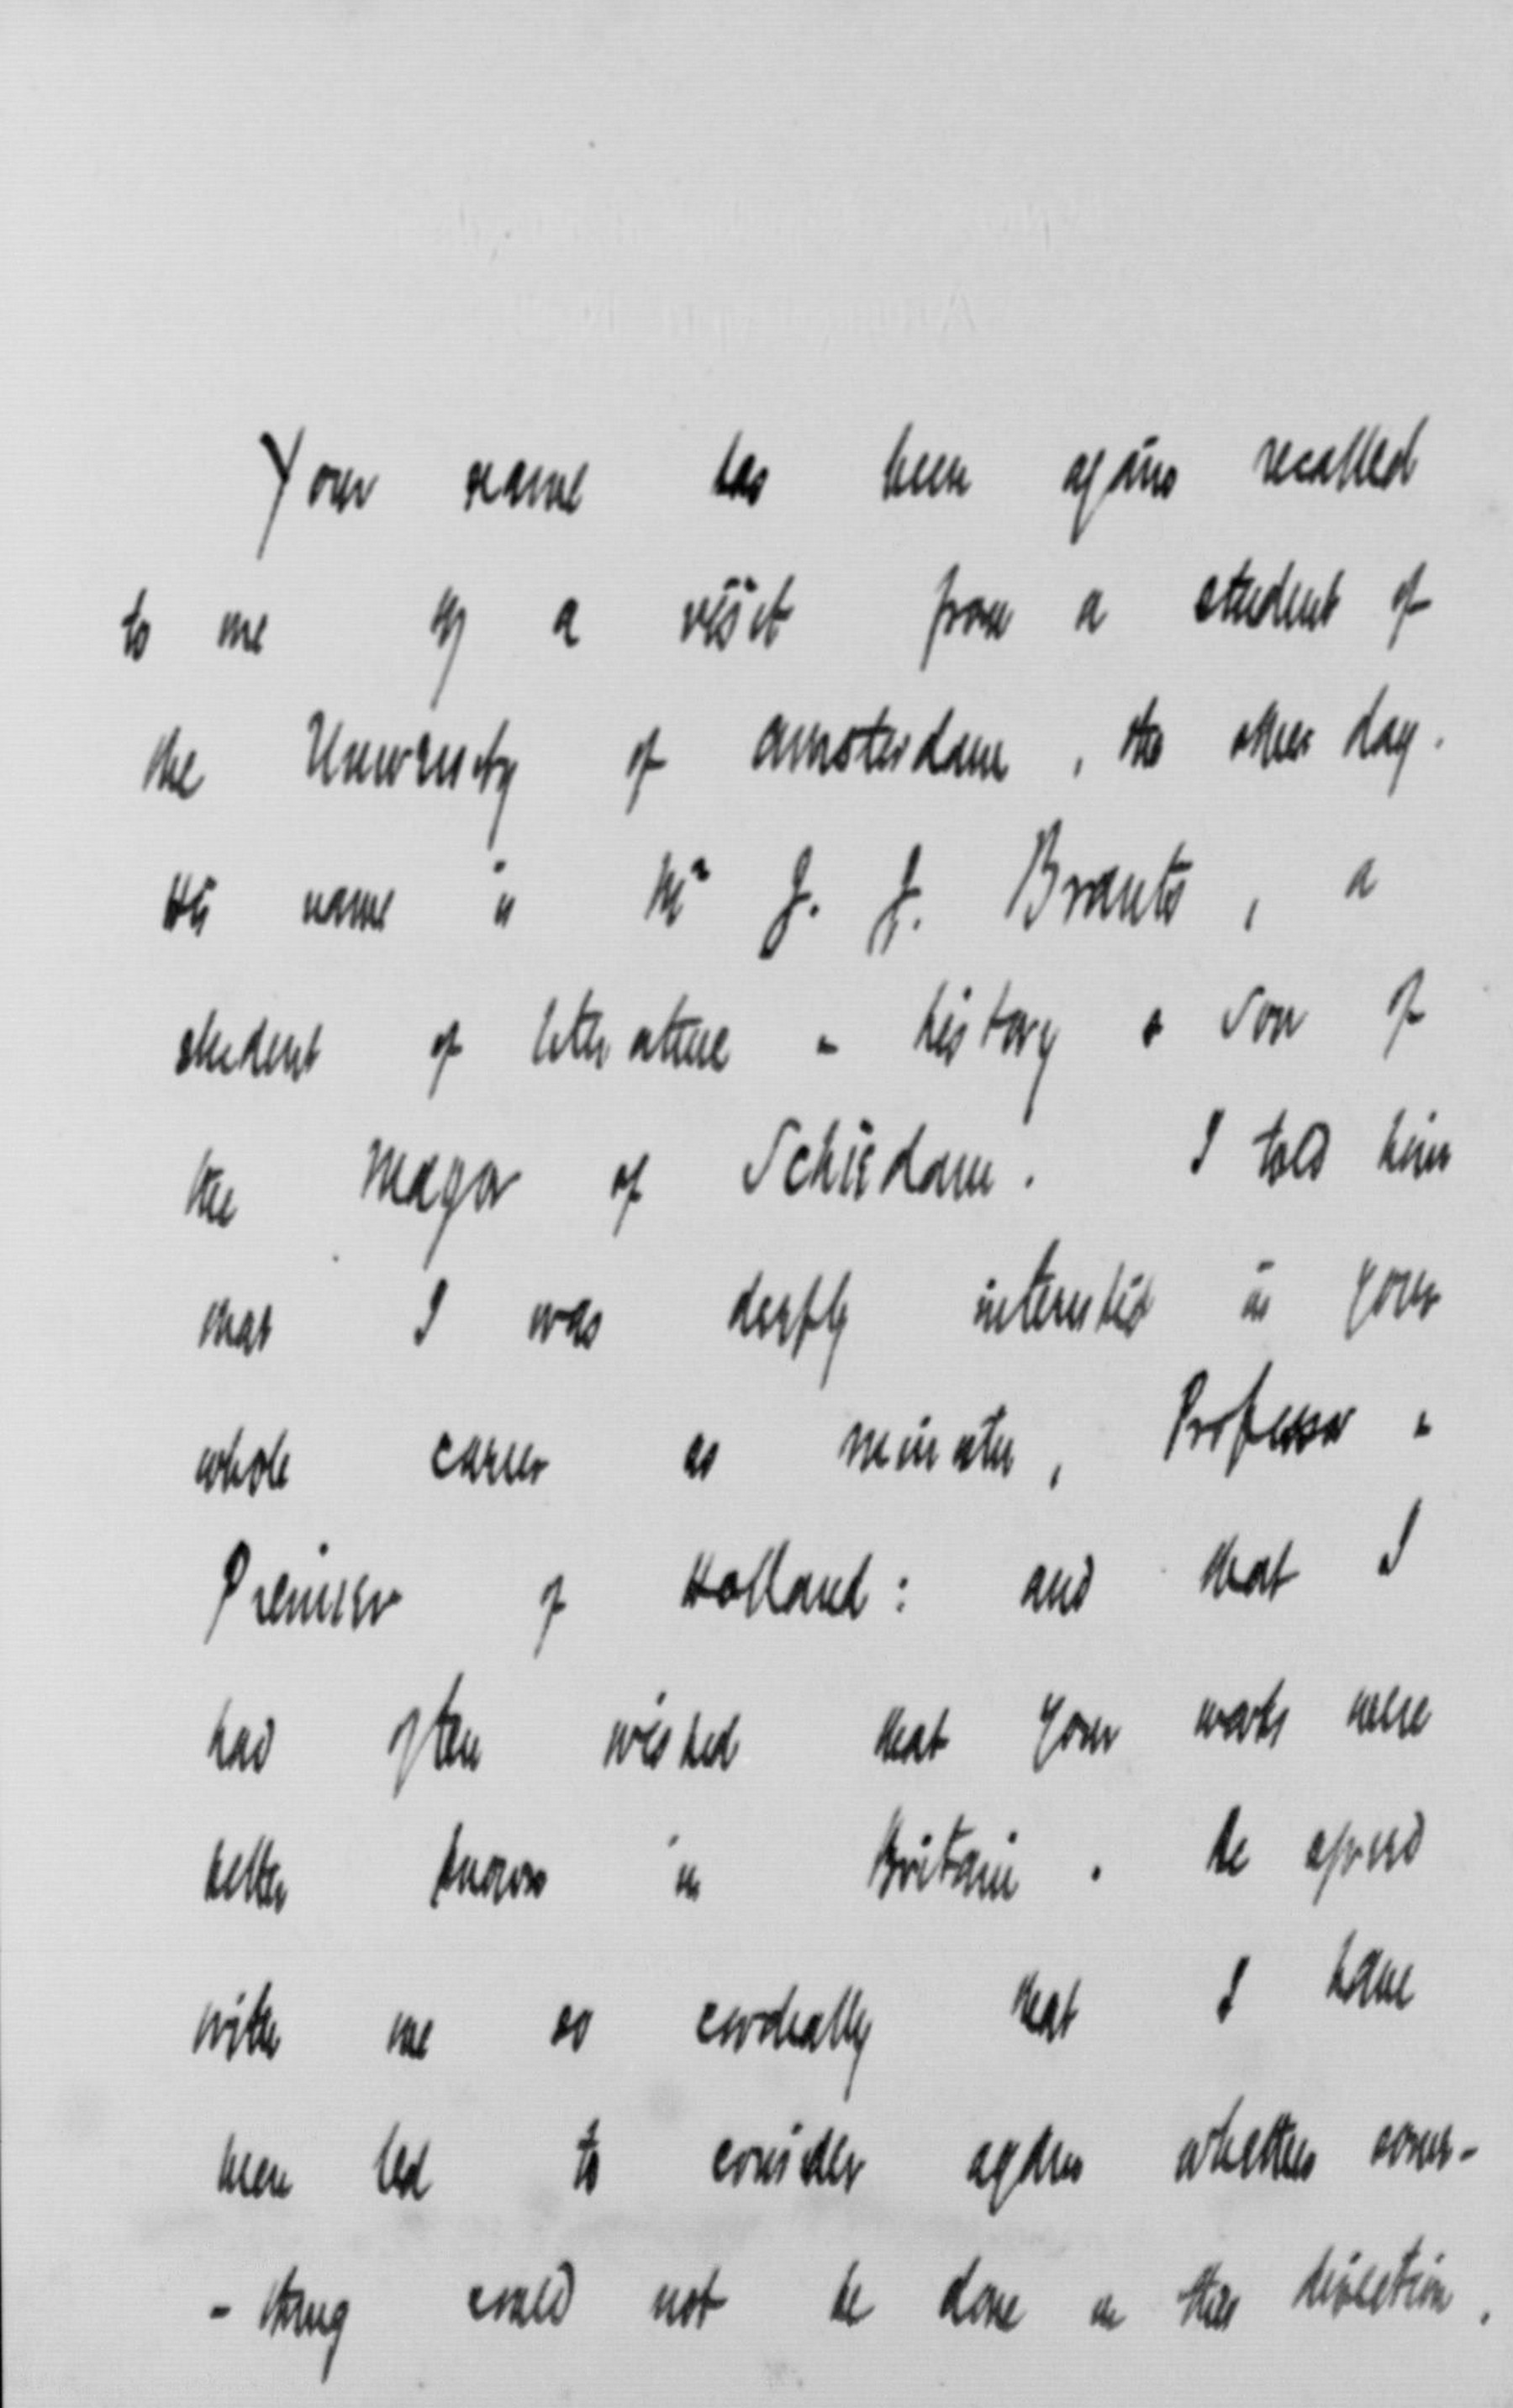 Your name has been again recalled
to me by a visit from a student of
the University of Amsterdam, the other day.
His name is Mr J. J. Brants, a
student of literature & history & son of
the Mayor of Schiedam. I told him
that I was deeply interested in your
whole career as minister, Professor &
Premier of Holland: and that I
had often wished that your works were
better known in Britain. He agreed
with me so cordially that I have
been led to consider again whether some-
-thing could not be done in this direction.